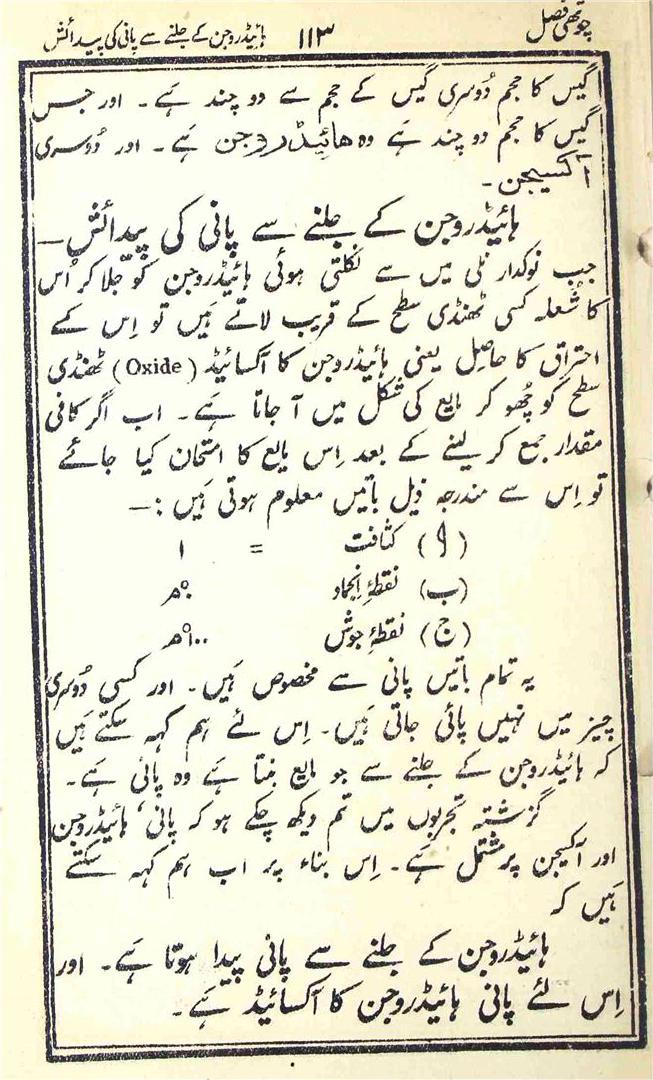 چوتھی فصل ۱۱۳ ہائیڈروجن کے جلنے سے پانی کی پیدائش
گیس کا حجم دُوسری گیس کے حجم سے دو چند ہَے۔ اور جس
گیس کا حجم دو چند ہَے وہ ھائیڈروجن ہَے۔ اور دُوسری
آکسیجن۔
ہائیڈروجن کے جلنے سے پانی کی پیدائش—
جب نوکدار نلی میں سے نکلتی ہوئی ہائیڈروجن کو جلا کر اُس
کا شُعلہ کسی ٹھنڈی سطح کے قریب لاتے ہَیں تو اِس کے
احتراق کا حاصِل یعنی ہائیڈروجن کا آکسائیڈ (Oxide) ٹھنڈی
سطح کو چُھو کر مایع کی شکل میں آ جاتا ہَے۔ اب اگر کافی
مقدار جمع کر لینے کے بعد اِس مایع کا امتحان کیا جائے
تو اِس سے مندرجہ ذیل باتیں معلوم ہوتی ہَیں :—
(ا) کثافت = ۱
(ب) نقطۂ اِنجماد ۰°م
(ج) نقطۂ جوش ۱۰۰°م
یہ تمام باتیں پانی سے مخصوص ہَیں۔ اور کسی دُوسری
چیز میں نہیں پائی جاتی ہَیں۔ اِس لئے ہم کہہ سکتے ہَیں
کہ ہائیڈروجن کے جلنے سے جو مایع بنتا ہے وہ پانی ہَے۔
گزشتہ تجربوں میں تم دیکھ چکے ہو کہ پانی، ہائیڈروجن
اور آکسیجن پر مشتمل ہَے۔ اِس بناء پر اب ہم کہہ سکتے
ہَیں کہ
ہائیڈروجن کے جلنے سے پانی پیدا ہوتا ہَے۔ اور
اِس لئے پانی ہائیڈروجن کا آکسائیڈ ہَے۔